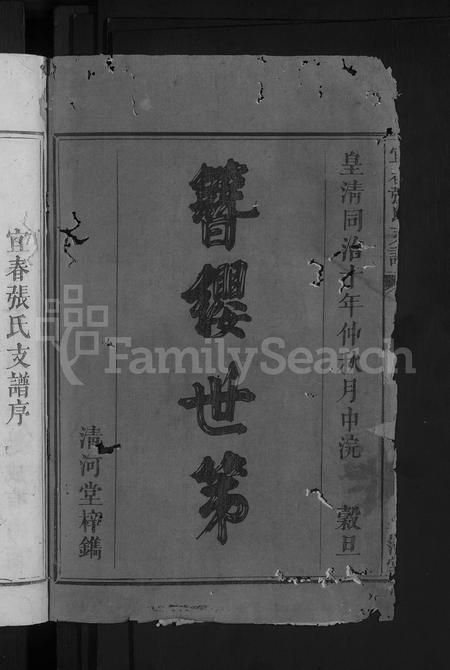 皇清同治才年仲秋月中浣 穀旦
簪纓世第
清河堂梓鐫
宜春張氏支譜序
宜春張氏支譜
FamilySearch